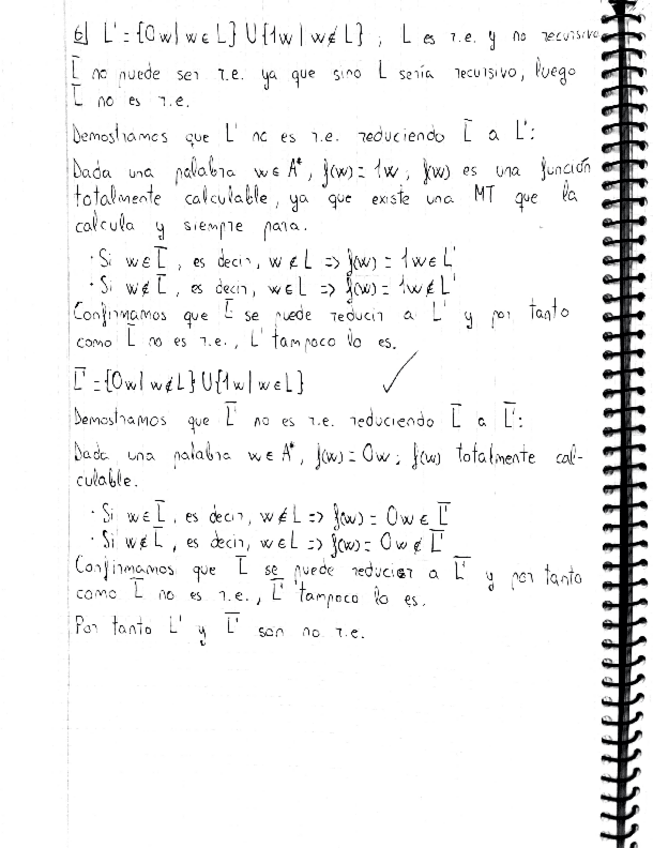 6) L' = {0w | w ∈ L} U {1w | w ∉ L} ; L es r.e. y no recursivo
L̅ no puede ser r.e. ya que sino L sería recursivo, luego
L̅ no es r.e.
Demostramos que L' no es r.e. reduciendo L̅ a L':
Dada una palabra w ∈ A*, f(w) = 1w ; f(w) es una función
totalmente calculable, ya que existe una MT que la
calcula y siempre para.
· Si w ∈ L̅ , es decir, w ∉ L => f(w) = 1w ∈ L'
· Si w ∉ L̅ , es decir, w ∈ L => f(w) = 1w ∉ L'
Confirmamos que L̅ se puede reducir a L' y por tanto
como L̅ no es r.e., L' tampoco lo es.
L̅' = {0w | w ∉ L} U {1w | w ∈ L} ✓
Demostramos que L̅' no es r.e. reduciendo L̅ a L̅':
Dada una palabra w ∈ A*, f(w) = 0w ; f(w) totalmente cal-
culable.
· Si w ∈ L̅ , es decir, w ∉ L => f(w) = 0w ∈ L̅'
· Si w ∉ L̅ , es decir, w ∈ L => f(w) = 0w ∉ L̅'
Confirmamos que L̅ se puede reducir a L̅' y por tanto
como L̅ no es r.e., L̅' tampoco lo es.
Por tanto L' y L̅' son no r.e.